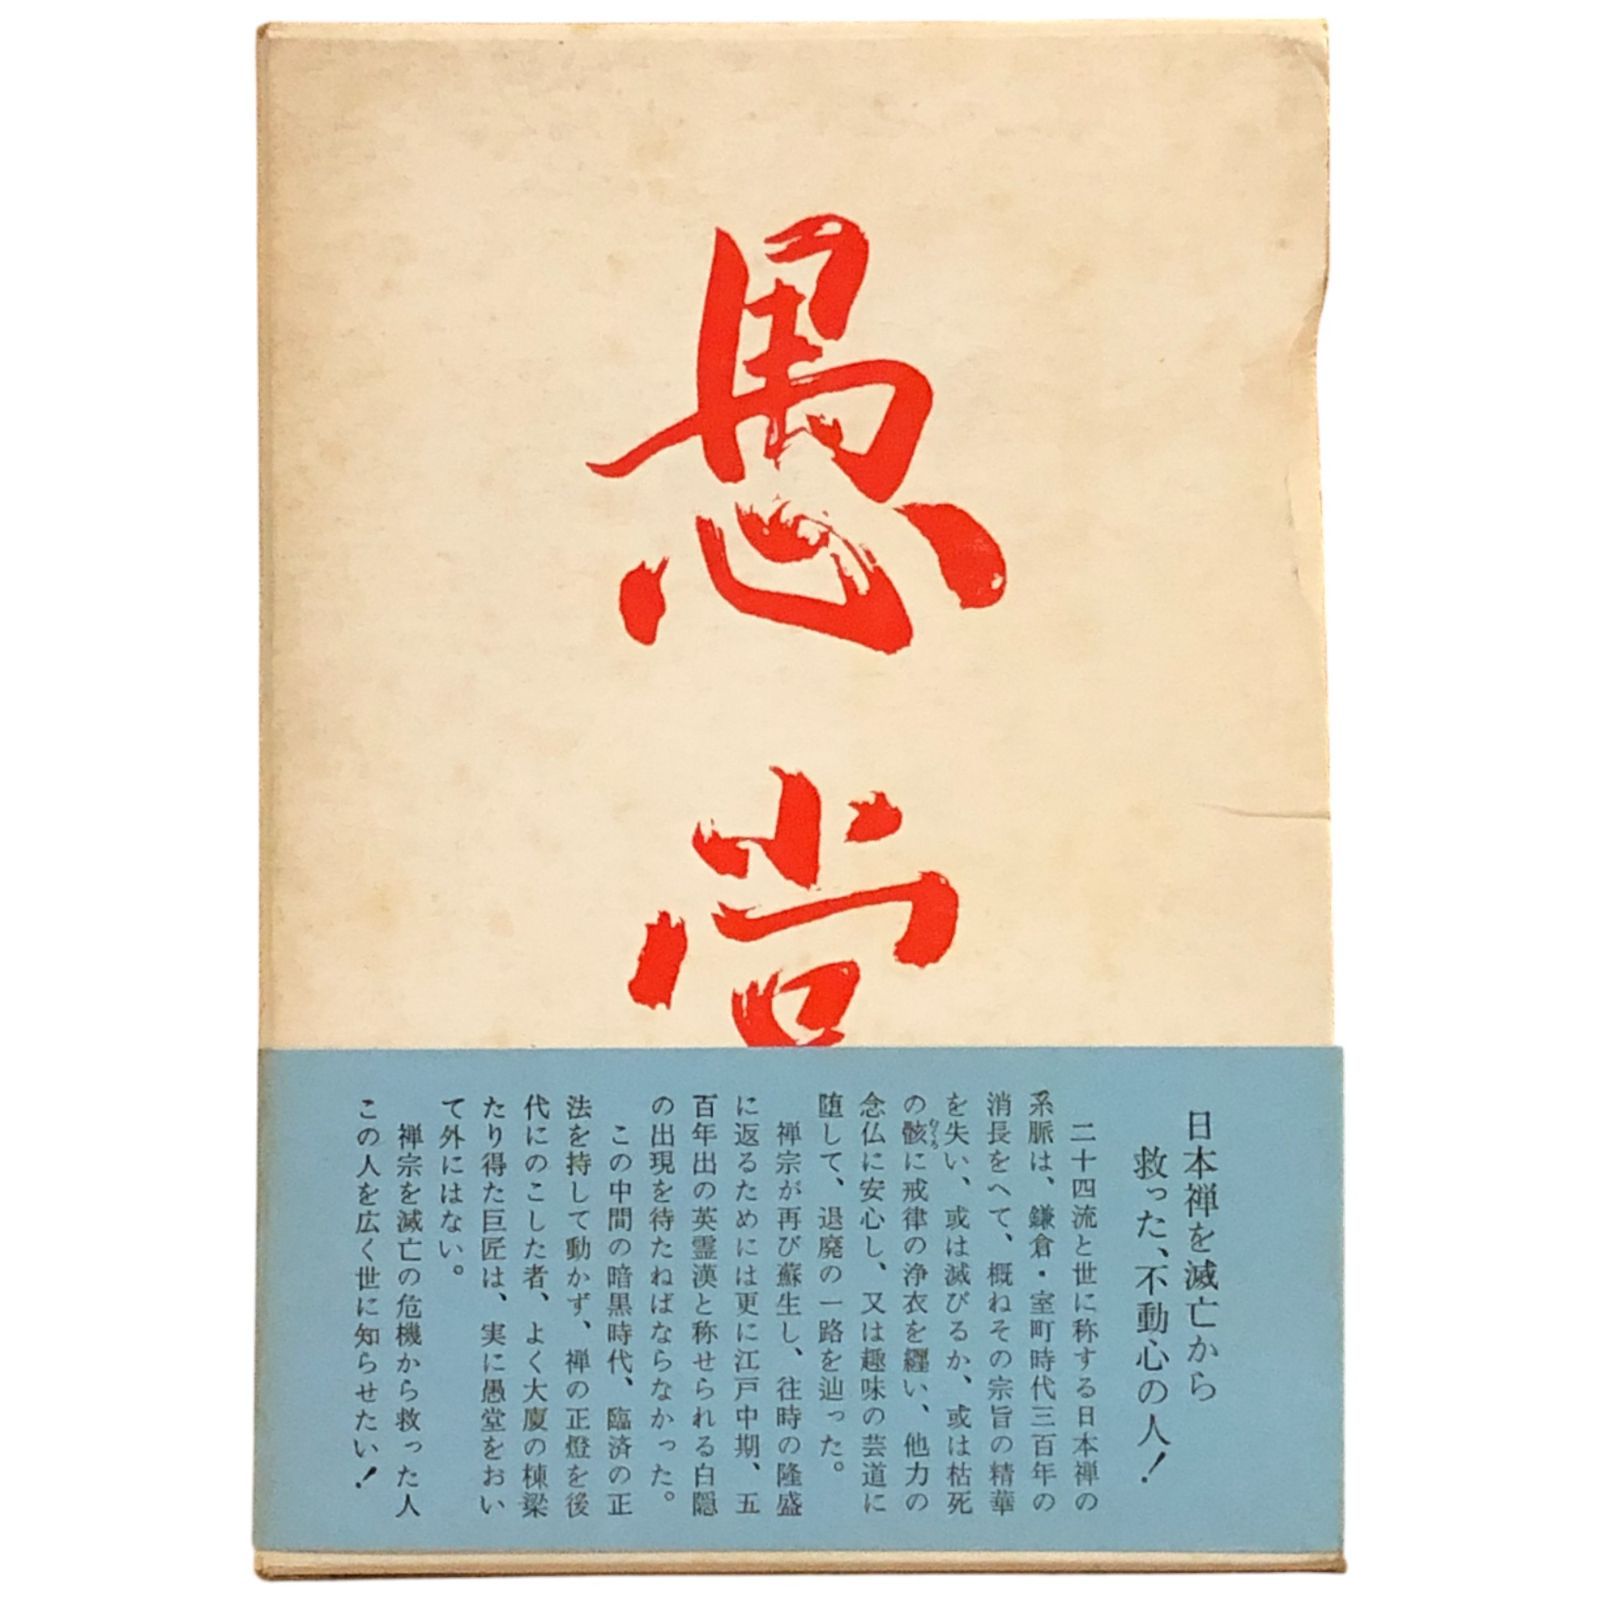 愚堂
日本禅を滅亡から
救った、不動心の人!
二十四流と世に称する日本禅の
系脈は、鎌倉・室町時代三百年の
消長をへて、概ねその宗旨の精華
を失い、或は滅びるか、或は枯死
の骸に戒律の浄衣を纒い、他力の
念仏に安心し、又は趣味の芸道に
堕して、退廃の一路を辿った。
禅宗が再び蘇生し、往時の隆盛
に返るためには更に江戸中期、五
百年出の英霊漢と称せられる白隠
の出現を待たねばならなかった。
この中間の暗黒時代、臨済の正
法を持して動かず、禅の正燈を後
代にのこした者、よく大廈の棟梁
たり得た巨匠は、実に愚堂をおい
て外にはない。
禅宗を滅亡の危機から救った人
この人を広く世に知らせたい!